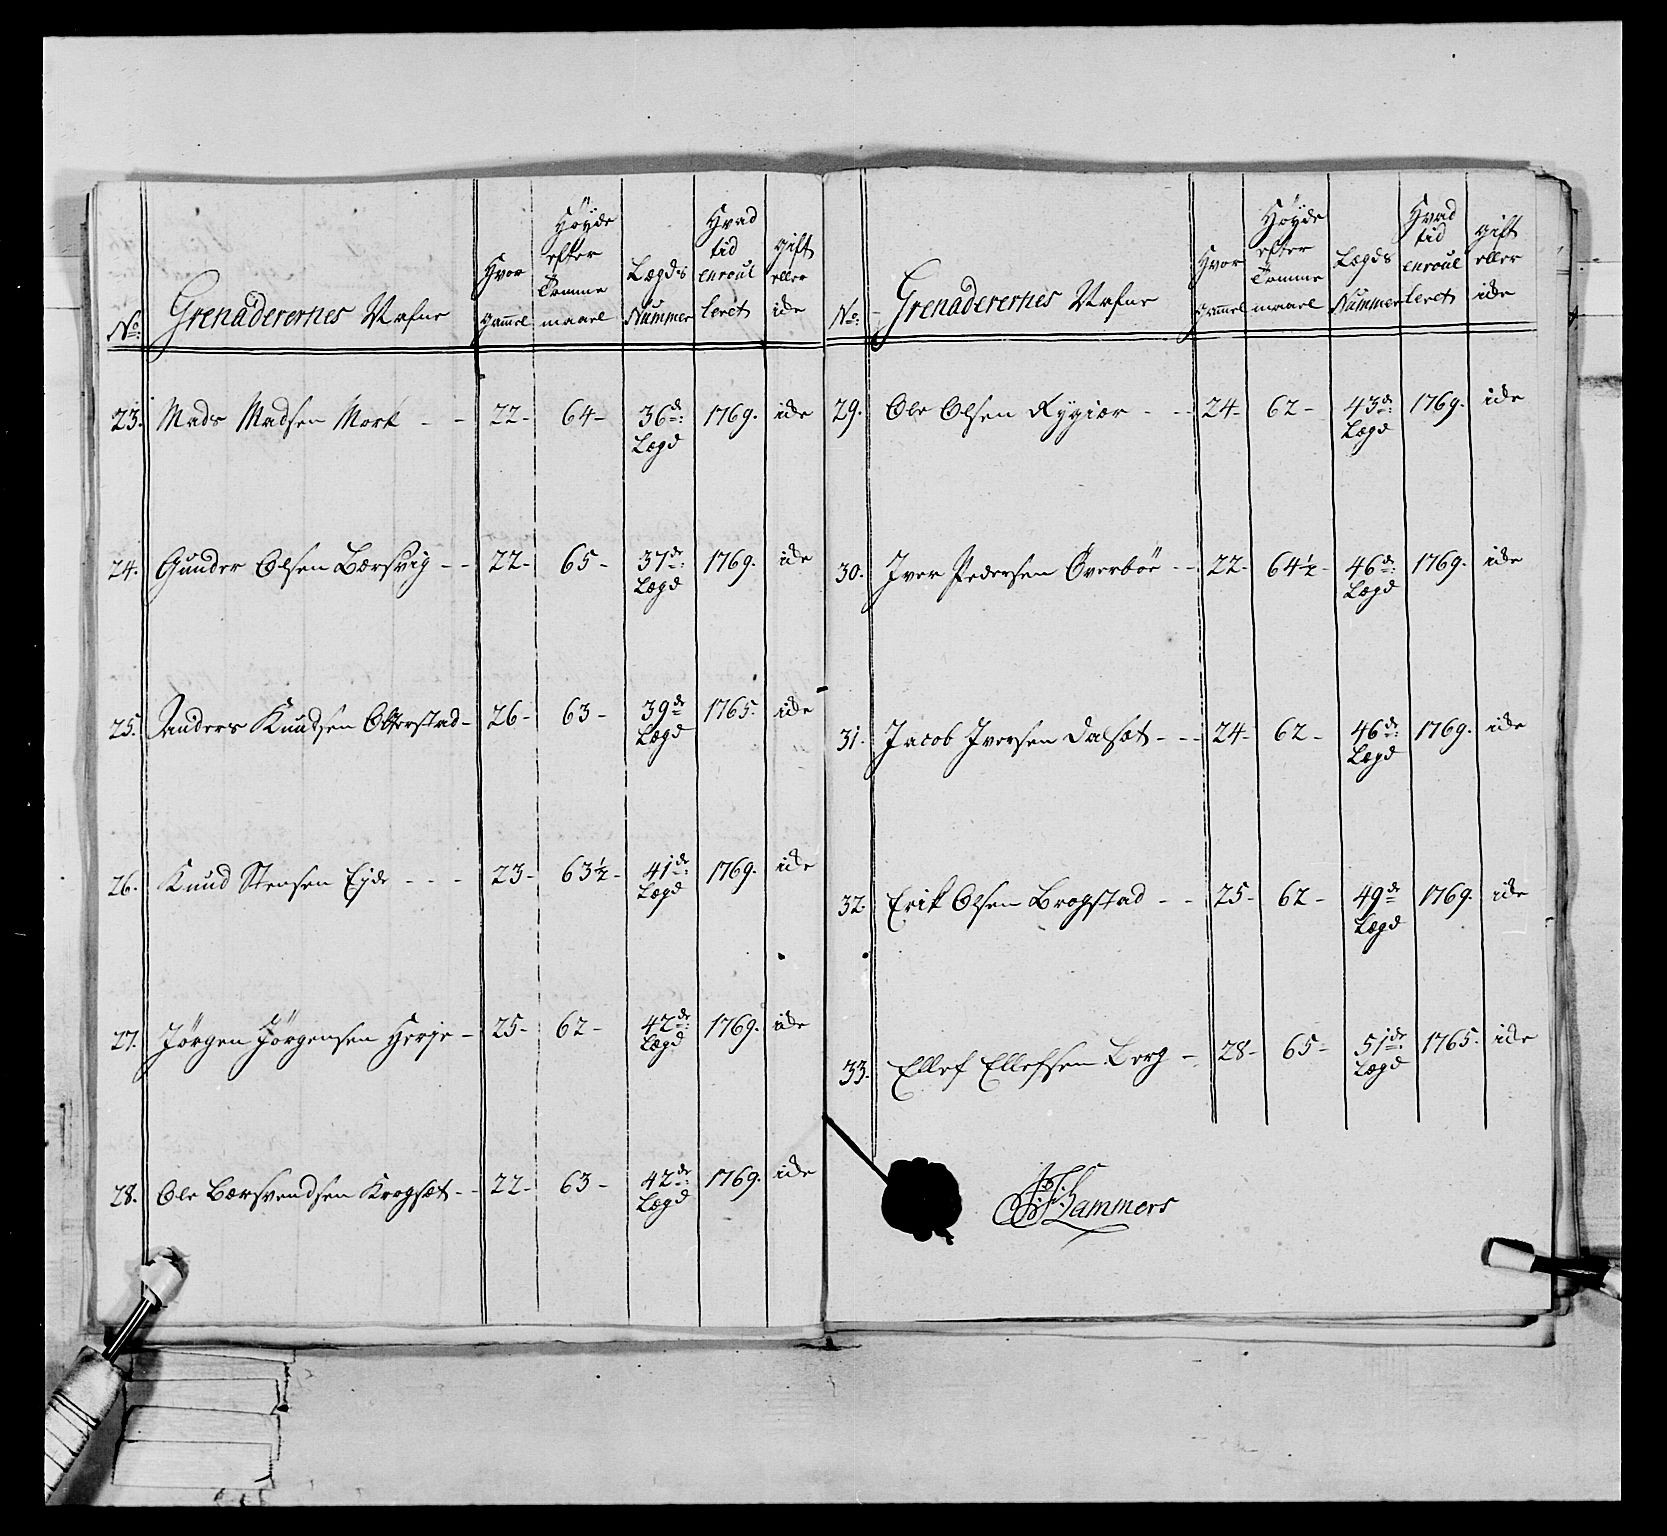 No: Grenaderernes Nafne Hvor gammel Höyde efter Tomme maael Lægds Nummer Hvad tid enroulleret gift eller ide
23. Mads Madsen Mork - - 22- 64- 36de: Lægd 1769. ide
24. Gunder Olsen Bærsvig - - 22- 65- 37de: Lægd 1769. ide
25. Anders Knudsen Otterstad- 26- 63- 39de Lægd 1765. ide
26. Knud Stensen Eyde - - - 23- 63½- 41de: Lægd 1769. ide
27. Jörgen Jörgensen Herje - 25- 62- 42de: Lægd 1769. ide
28. Ole Bærsvendsen Krogsæt - - 22- 63- 42de: Lægd 1769. ide
No: Grenaderernes Nafne Hvor gammel Höyde efter Tomme maael Lægds Nummer Hvad tid enroulleret gift eller ide
29. Ole Olsen - - 24- 62- 43de: Lægd 1769. ide
30. Iver Pedersen Överböe - - 22- 64½- 46de: Lægd 1769. ide
31. Jacob Iversen Dalsæt - - - 24- 62- 46de: Lægd 1769. ide
32. Erik Olsen Brogstad - - 25- 62- 49de Lægd 1769. ide
33. Ellef Ellefsen Berg - 28- 65- 51de: Lægd 1765. ide
Hammers